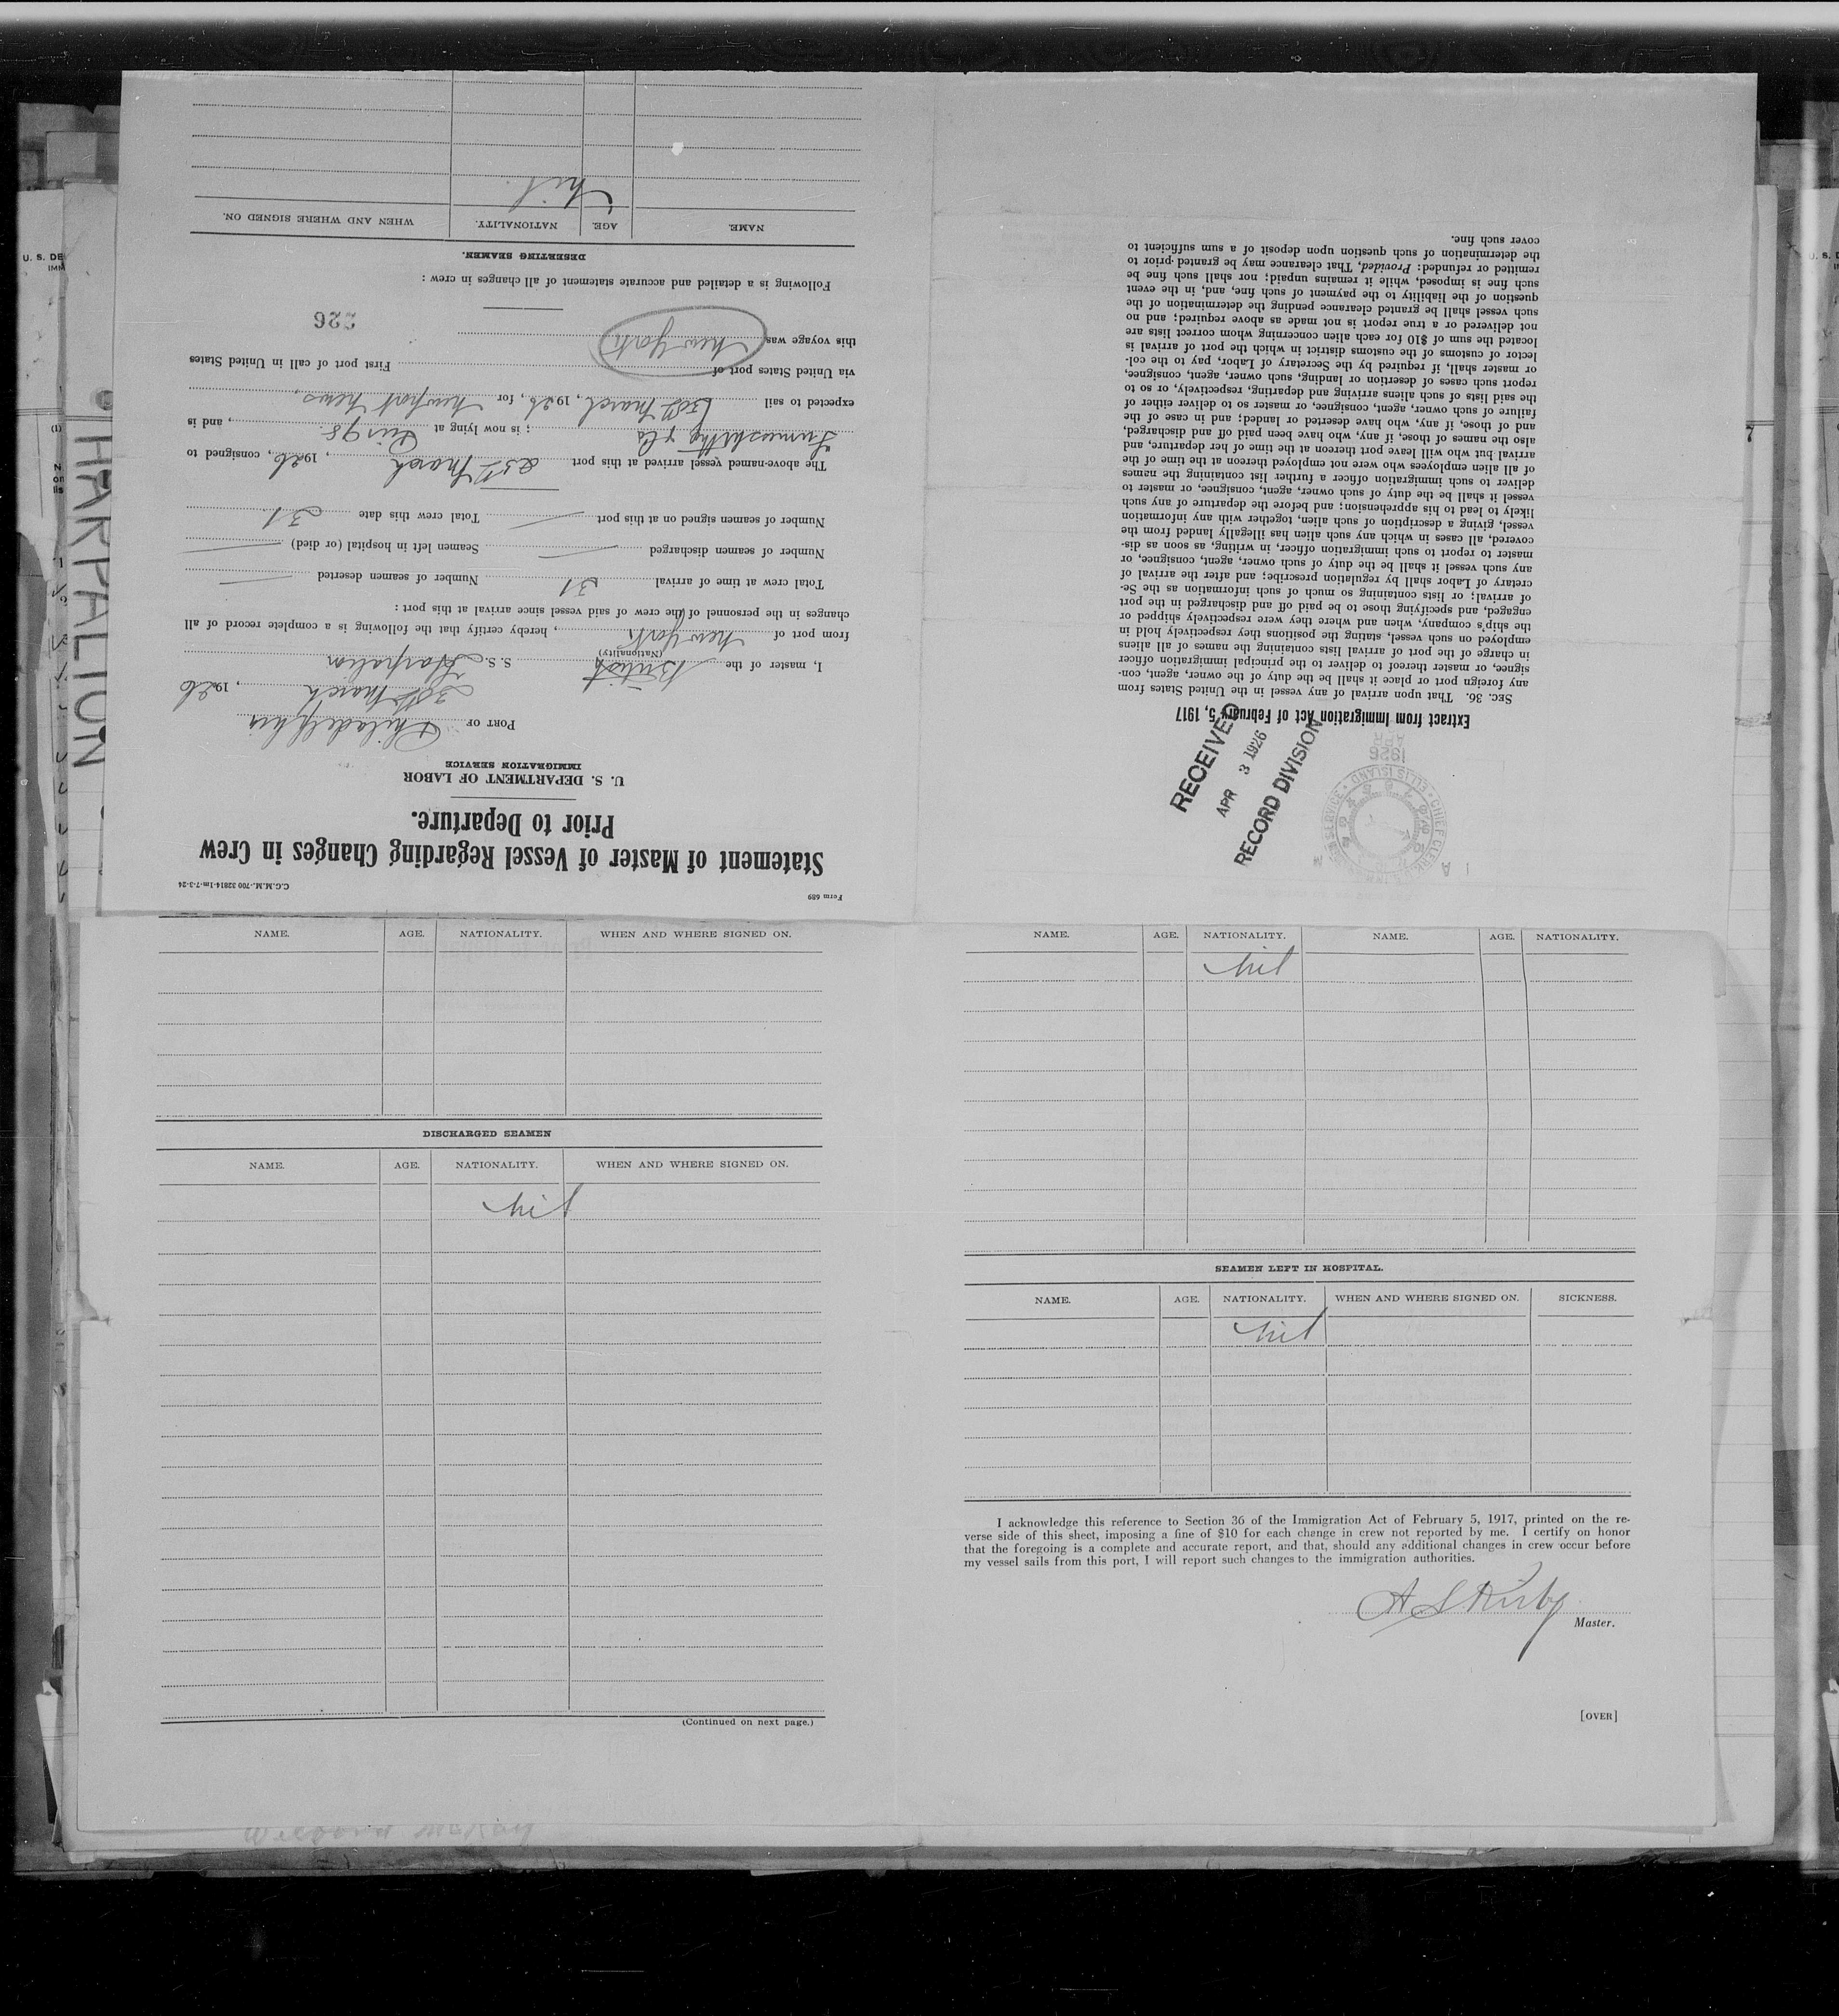 Form 689
C.G.M.M.-700 32814-1m-7-3-24
Statement of Master of Vessel Regarding Changes in Crew
Prior to Departure.
U. S. DEPARTMENT OF LABOR
IMMIGRATION SERVICE
PORT OF Philadelphia
30th March, 1926
I, master of the British S. S. Harpalion
(Nationality)
from port of New York, hereby certify that the following is a complete record of all
changes in the personnel of the crew of said vessel since arrival at this port :
Total crew at time of arrival 31 Number of seamen deserted —
Number of seamen discharged — Seamen left in hospital (or died) —
Number of seamen signed on at this port — Total crew this date 31
The above-named vessel arrived at this port March, 1926, consigned to
; is now lying at , and is
expected to sail 30th March, 1926, for Newport News,
via United States port of First port of call in United States
this voyage was New York
226
Following is a detailed and accurate statement of all changes in crew :
DESERTING SEAMEN.
NAME. AGE. NATIONALITY. WHEN AND WHERE SIGNED ON.
nil
Extract from Immigration Act of February 5, 1917
SEC. 36. That upon arrival of any vessel in the United States from
any foreign port or place it shall be the duty of the owner, agent, con-
signee, or master thereof to deliver to the principal immigration officer
in charge of the port of arrival lists containing the names of all aliens
employed on such vessel, stating the positions they respectively hold in
the ship's company, when and where they were respectively shipped or
engaged, and specifying those to be paid off and discharged in the port
of arrival; or lists containing so much of such information as the Se-
cretary of Labor shall by regulation prescribe; and after the arrival of
any such vessel it shall be the duty of such owner, agent, consignee, or
master to report to such immigration officer, in writing, as soon as dis-
covered, all cases in which any such alien has illegally landed from the
vessel, giving a description of such alien, together with any information
likely to lead to his apprehension; and before the departure of any such
vessel it shall be the duty of such owner, agent, consignee, or master to
deliver to such immigration officer a further list containing the names
of all alien employees who were not employed thereon at the time of the
arrival but who will leave port thereon at the time of her departure, and
also the names of those, if any, who have been paid off and discharged,
and of those, if any, who have deserted or landed; and in case of the
failure of such owner, agent, consignee, or master so to deliver either of
the said lists of such aliens arriving and departing, respectively, or so to
report such cases of desertion or landing, such owner, agent, consignee,
or master shall, if required by the Secretary of Labor, pay to the col-
lector of customs of the customs district in which the port of arrival is
located the sum of $10 for each alien concerning whom correct lists are
not delivered or a true report is not made as above required; and no
such vessel shall be granted clearance pending the determination of the
question of the liability to the payment of such fine, and, in the event
such fine is imposed, while it remains unpaid; nor shall such fine be
remitted or refunded: Provided, That clearance may be granted prior to
the determination of such question upon deposit of a sum sufficient to
cover such fine.
RECEIVED
APR 3 1926
RECORD DIVISION
CHIEF CLERK
ELLIS ISLAND
SERVICE
APR
1926
HARPALION
U. S. DE
IMM
NAME. AGE. NATIONALITY. WHEN AND WHERE SIGNED ON.
DISCHARGED SEAMEN
NAME. AGE. NATIONALITY. WHEN AND WHERE SIGNED ON.
nil
(Continued on next page.)
NAME. AGE. NATIONALITY. NAME. AGE. NATIONALITY.
nil
SEAMEN LEFT IN HOSPITAL.
NAME. AGE. NATIONALITY. WHEN AND WHERE SIGNED ON. SICKNESS.
nil
I acknowledge this reference to Section 36 of the Immigration Act of February 5, 1917, printed on the re-
verse side of this sheet, imposing a fine of $10 for each change in crew not reported by me. I certify on honor
that the foregoing is a complete and accurate report, and that, should any additional changes in crew occur before
my vessel sails from this port, I will report such changes to the immigration authorities.
Master.
[OVER]